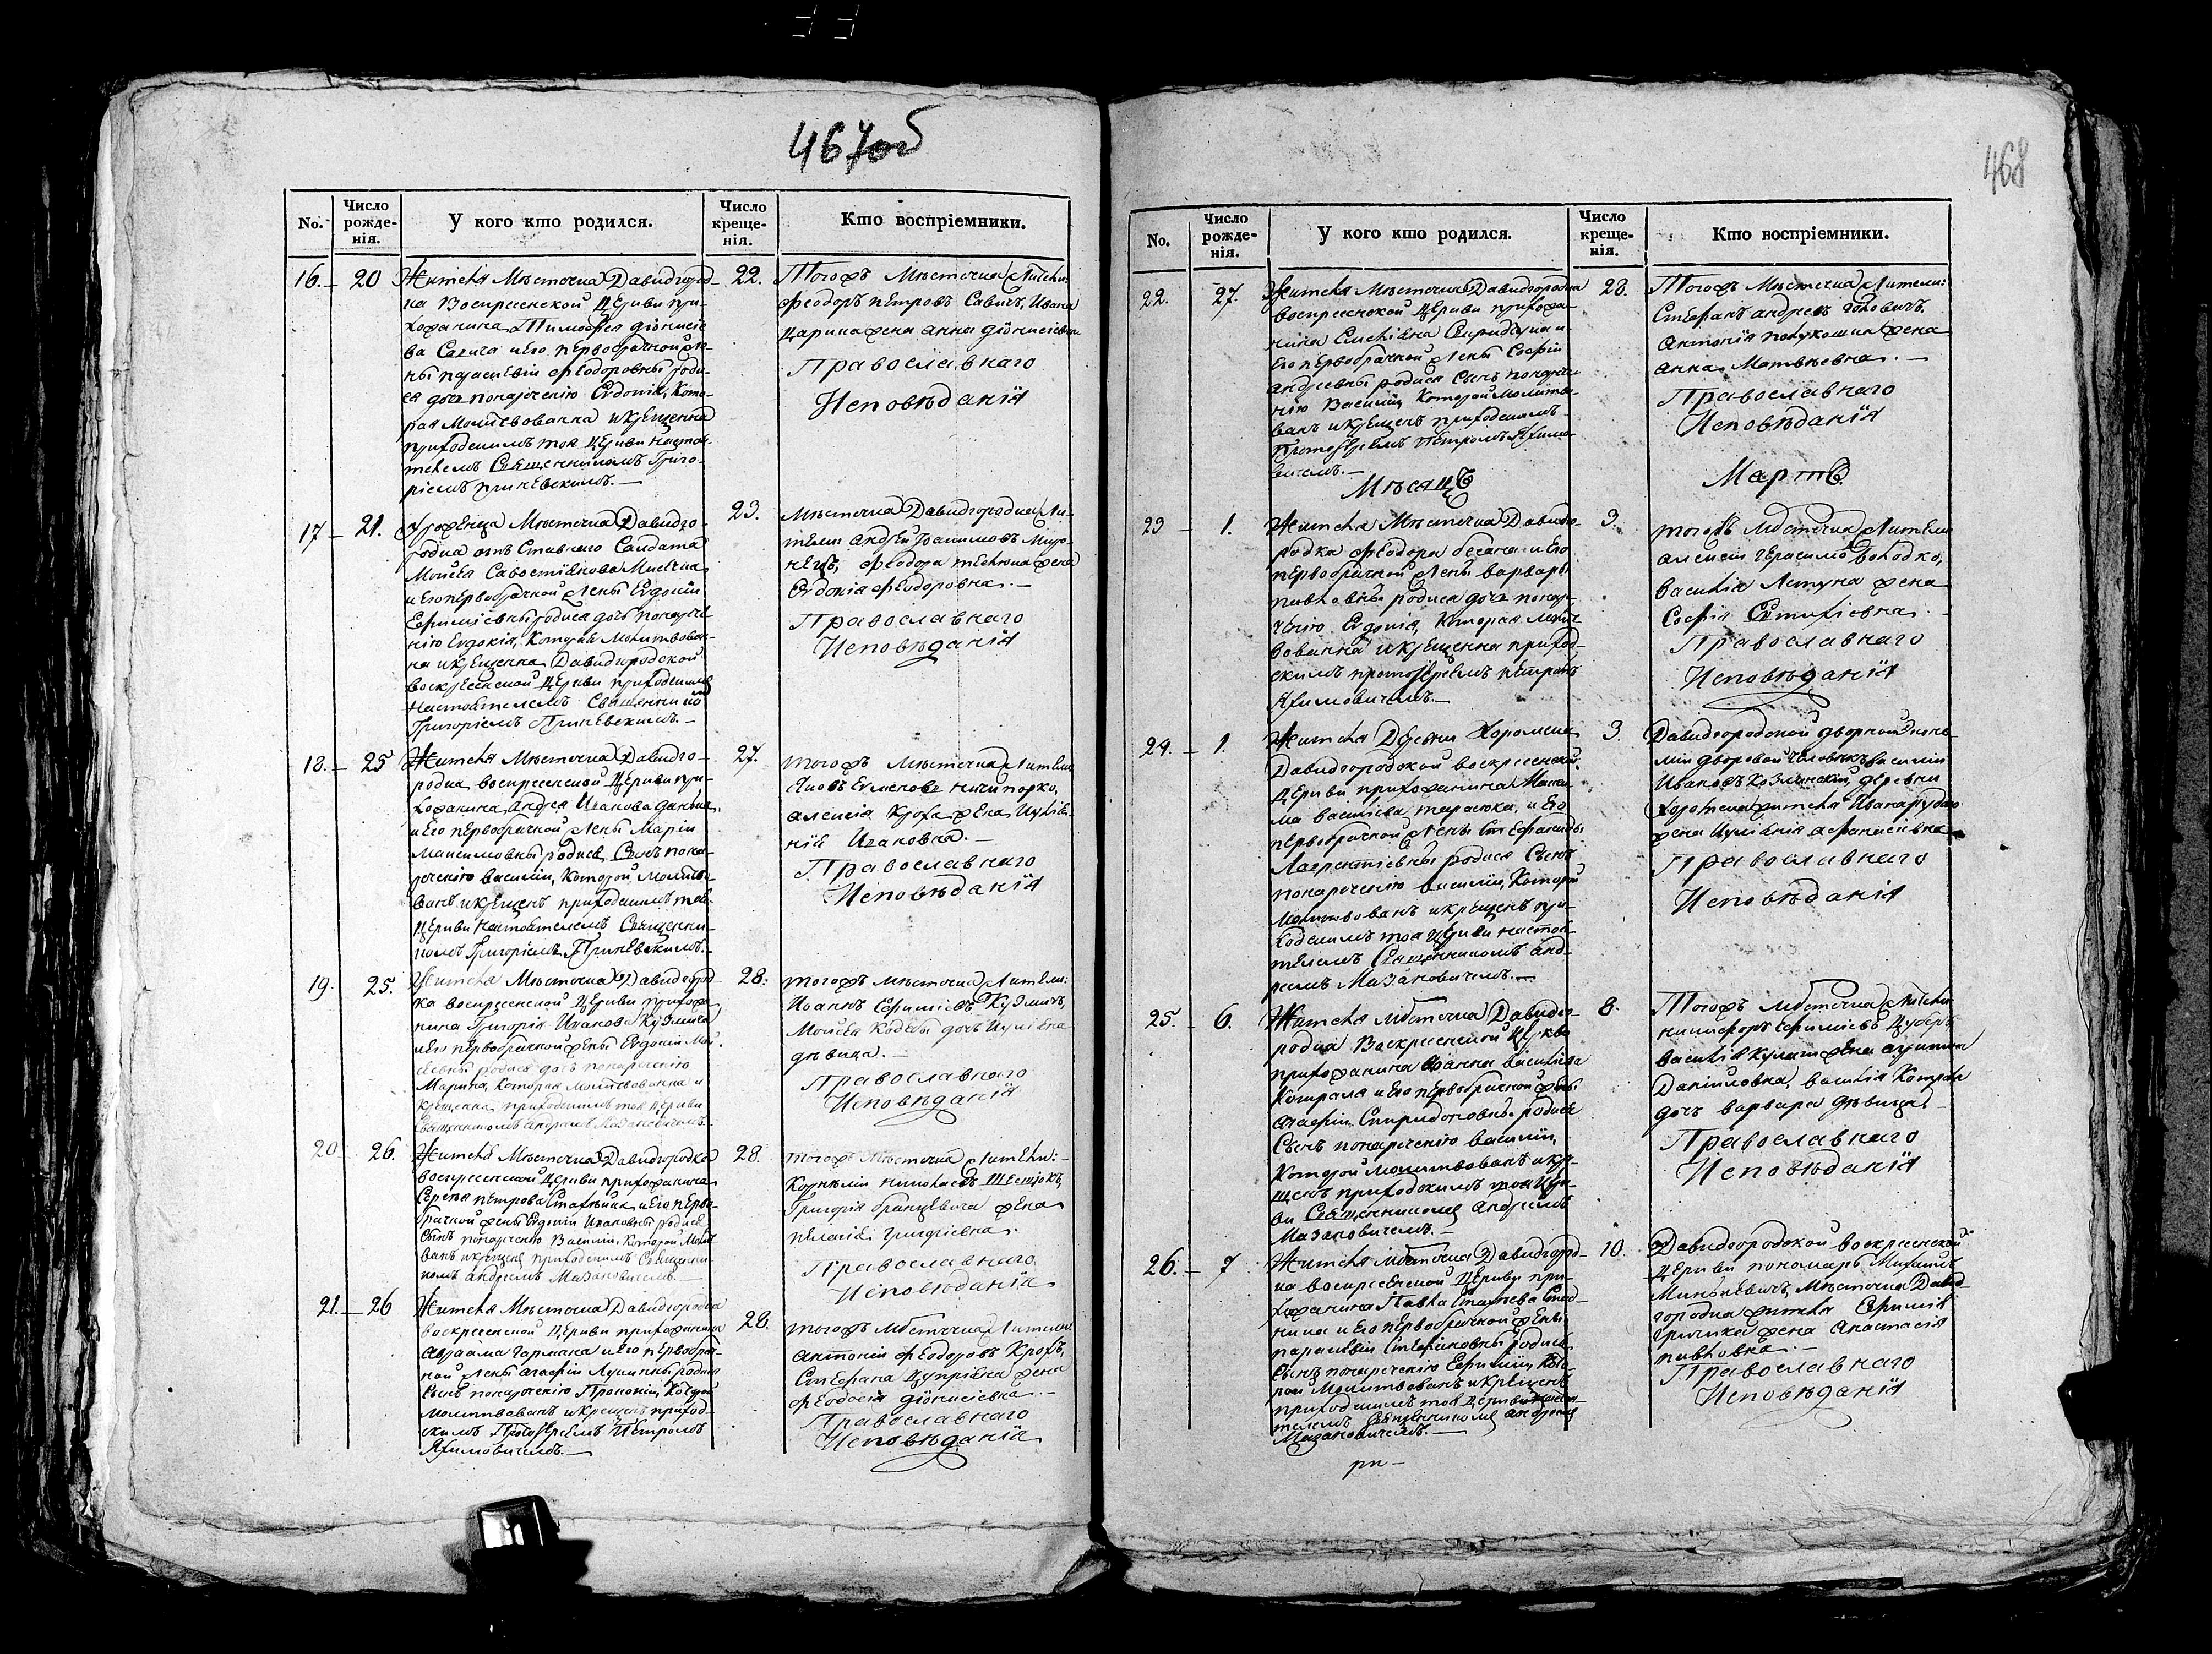 467об
No.
Число рожде-нія.
У кого кто родился.
Число креще-нія.
Кто воспріемники.
16.
20
Жителя Мѣстечка Давидгород-
ка Воскресенской Церкви при-
хожанина Тимофея Діонисіе
ва Савича и его первобрачной же-
ны Параскевіи Феодоровны роди-
ся дочь понареченію Евдокія, Кото-
рая Молитвованна и крещенна
приходскимъ тоя Церкви настоя-
телемъ Священникомъ Григо-
ріемъ Приневскимъ.
22.
Тогожъ Мѣстечка Жители:
Феодоръ Петровъ Савичъ, Ивана
Царика жена Анна Діонисіевна
Православнаго
Исповѣданія
17
21.
Уроженца Мѣстечка Давидго-
родка отъ Ставного Салдата
Мойсея Савостіянова
и Его первобрачной жены Евдокіи
Ефиміевны родися дочь понарече-
нію Евдокія, Которая Молитвован-
на и крещенна Давидгородской
Воскресенской Церкви приходскимъ
Настоятелемъ Священникомъ
Григоріемъ Приневскимъ.
23.
Мѣстечка Давидгородка Жи-
тели: Андрей
Феодора жена
Евдокія Феодоровна.
Православнаго
Исповѣданія
18.
25
Жителя Мѣстечка Давидго-
родка Воскресенской Церкви при-
хожанина Андрея Иванова
и Его первобрачной жены Маріи
Максимовны родися Сынъ пона-
реченію Василій, Которой Молитво-
ванъ и крещенъ приходскимъ тоя
Церкви Настоятелемъ Священни-
комъ Григоріемъ Приневскимъ.
27.
тогожъ Мѣстечка Жители
Ничипорко,
Алексія Кроха жена Иуліа-
нія Ивановна.
Православнаго
Исповѣданія
19.
25.
Жителя Мѣстечка Давидгород-
ка Воскресенской Церкви прихожа-
нина Григорія Иванова Кузмича
и его первобрачной жены Евдокіи Мой-
сеевны родися дочь понареченію
Марина, Которая Молитвованна и
крещенна приходскимъ тоя Церкви
Священникомъ Андреемъ Мазановичемъ.
28.
тогожъ Мѣстечка Жители:
Иванъ Ефиміевъ Кузмичъ,
Мойсея дочь Иуліана
дѣвица.
Православнаго
Исповѣданія
20
26.
Жителя Мѣстечка Давидгородка
Воскресенской Церкви прихожанина
Сергѣя Петрова и Его перво-
брачной жены Евдокіи Ивановны родися
Сынъ понареченію Василій, Которой Молитво-
ванъ и крещенъ приходскимъ Священни-
комъ Андреемъ Мазановичемъ.
28.
тогожъ Мѣстечка Жители:
Корнилій Николаевъ
Григорія жена
Пелагія Григоріевна.
Православнаго
Исповѣданія
21.
26
Жителя Мѣстечка Давидгородка
Воскресенской Церкви прихожанина
Авраама Гармана и Его первобрач-
ной жены Агафіи родися
Сынъ понареченію Прокопій, Которой
Молитвованъ и крещенъ приход-
скимъ Протоіереемъ Петромъ
Яхимовичемъ.
28.
тогожъ Мѣстечка Жители:
Антоній Феодоровъ Крохъ,
Стефана жена
Феодосія Діонисіевна.
Православнаго
Исповѣданія
468
No.
Число рожде-нія.
У кого кто родился.
Число креще-нія.
Кто воспріемники.
22.
27.
Жителя Мѣстечка Давидгородка
Воскресенской Церкви прихожа-
нина и
Его первобрачной жены Софіи
Андреевны родися Сынъ понарече-
нію Василій, Которой Молитво-
ванъ и крещенъ приходскимъ
Протоіереемъ Петромъ Яхимо-
вичемъ.
28.
Тогожъ Мѣстечка Жители:
Стефанъ Андреевъ
Антонія жена
Анна Матвѣевна.
Православнаго
Исповѣданія
Мѣсяцъ
Мартъ.
23
1.
Жителя Мѣстечка Давидго-
родка Феодора и Его
первобрачной жены Варвары
Павловны родися дочь понаре-
ченію Евдокія, Которая Молит-
вованна и крещенна приход-
скимъ протоіереемъ Петромъ
Яхимовичемъ.
3.
тогожъ Мѣстечка Жители
Алексій Герасимовъ
Василія жена
Софія
Православнаго
Исповѣданія
24.
1.
Жителя Деревни Хоромска
Давидгородской Воскресенской
Церкви прихожанина Макси-
ма Василіева Тарасюка, и Его
первобрачной жены Стефаниды
Лаврентіевны родися Сынъ
понареченію Василій, Которой
Молитвованъ и крещенъ при-
ходскимъ тоя Церкви настоя-
телемъ Священникомъ Анд-
реемъ Мазановичемъ.
3.
Давидгородской дворной Эконо-
міи дворовой человѣкъ Василій
Ивановъ деревни
Хоромска жителя Ивана
жена Иуліанія Афанасіевна
Православнаго
Исповѣданія
25.
6.
Жителя Мѣстечка Давидго-
родка Воскресенской Церкви
прихожанина Іоанна Василіева
и Его первобрачной жены
Агафіи Спиридоновны родися
Сынъ понареченію Василій,
Которой Молитвованъ и кре-
щенъ приходскимъ тоя Церк-
ви Священникомъ Андреемъ
Мазановичемъ.
8.
Тогожъ Мѣстечка Жители
Никифоръ Ефиміевъ
Василія жена
Даниловна, Василія
дочь Варвара дѣвица.
Православнаго
Исповѣданія
26.
7
Жителя Мѣстечка Давидгород-
ка Воскресенской Церкви при-
хожанина Павла
и Его первобрачной жены
Параскевіи Стефановны родися
Сынъ понареченію Ефимій, Кото-
рой Молитвованъ и крещенъ
приходскимъ тоя Церкви настоя-
телемъ Священникомъ Андреемъ
Мазановичемъ.
10.
Давидгородской Воскресенской
Церкви пономарь Михаилъ
Мѣстечка Давид-
городка жителя Ефимія
жена Анастасія
Павловна.
Православнаго
Исповѣданія